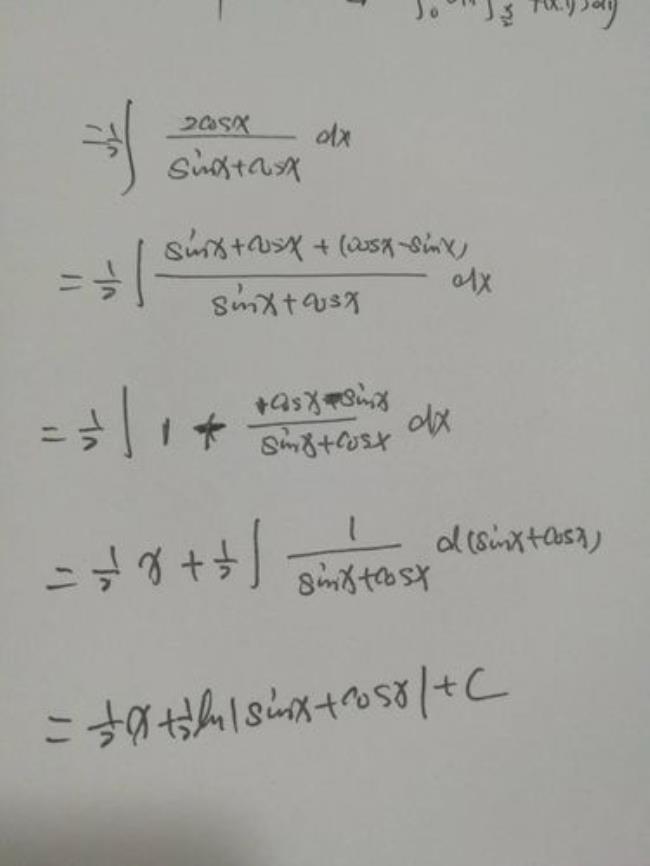 = 1/2 ∫ 2cosx / (sinx+cosx) dx
= 1/2 ∫ (sinx+cosx+(cosx-sinx)) / (sinx+cosx) dx
= 1/2 ∫ 1 + (cosx-sinx) / (sinx+cosx) dx
= 1/2 x + 1/2 ∫ 1 / (sinx+cosx) d(sinx+cosx)
= 1/2 x + 1/2 ln|sinx+cosx| + C